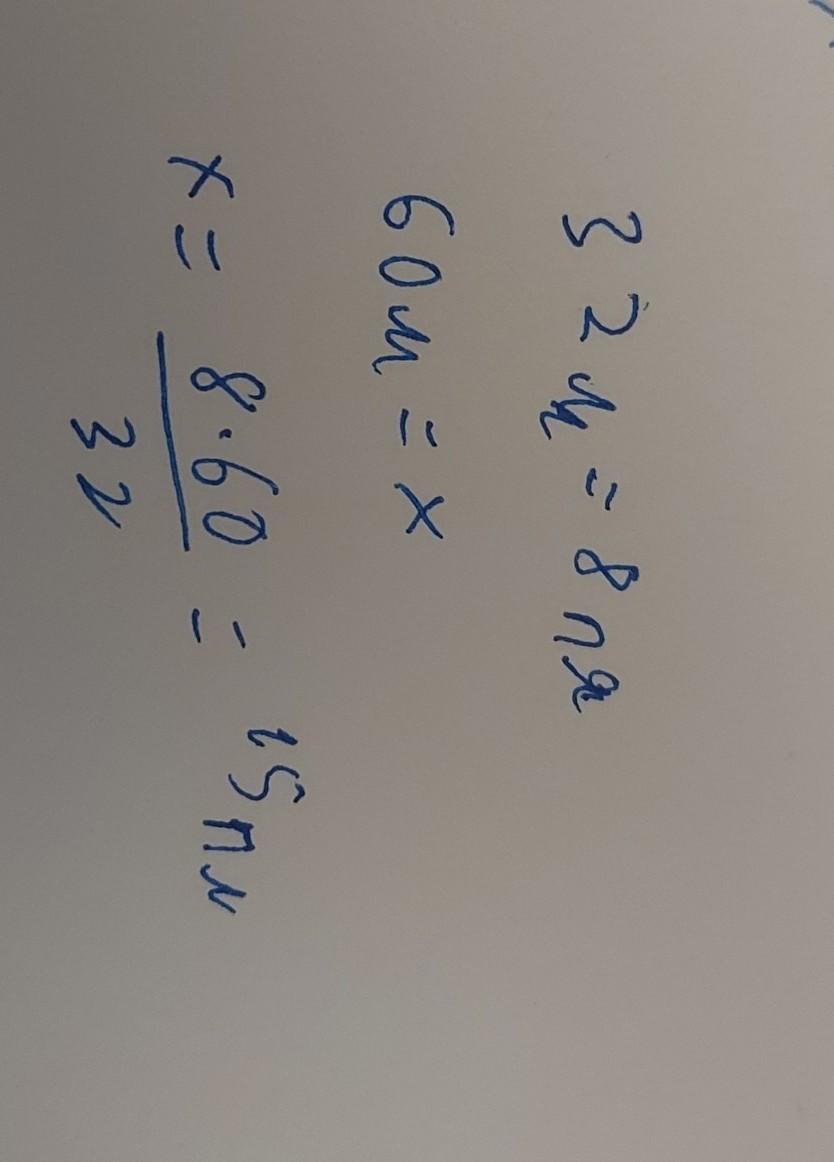 32м = 8пл
60м = x
x = 8·60 / 32 = 15пл